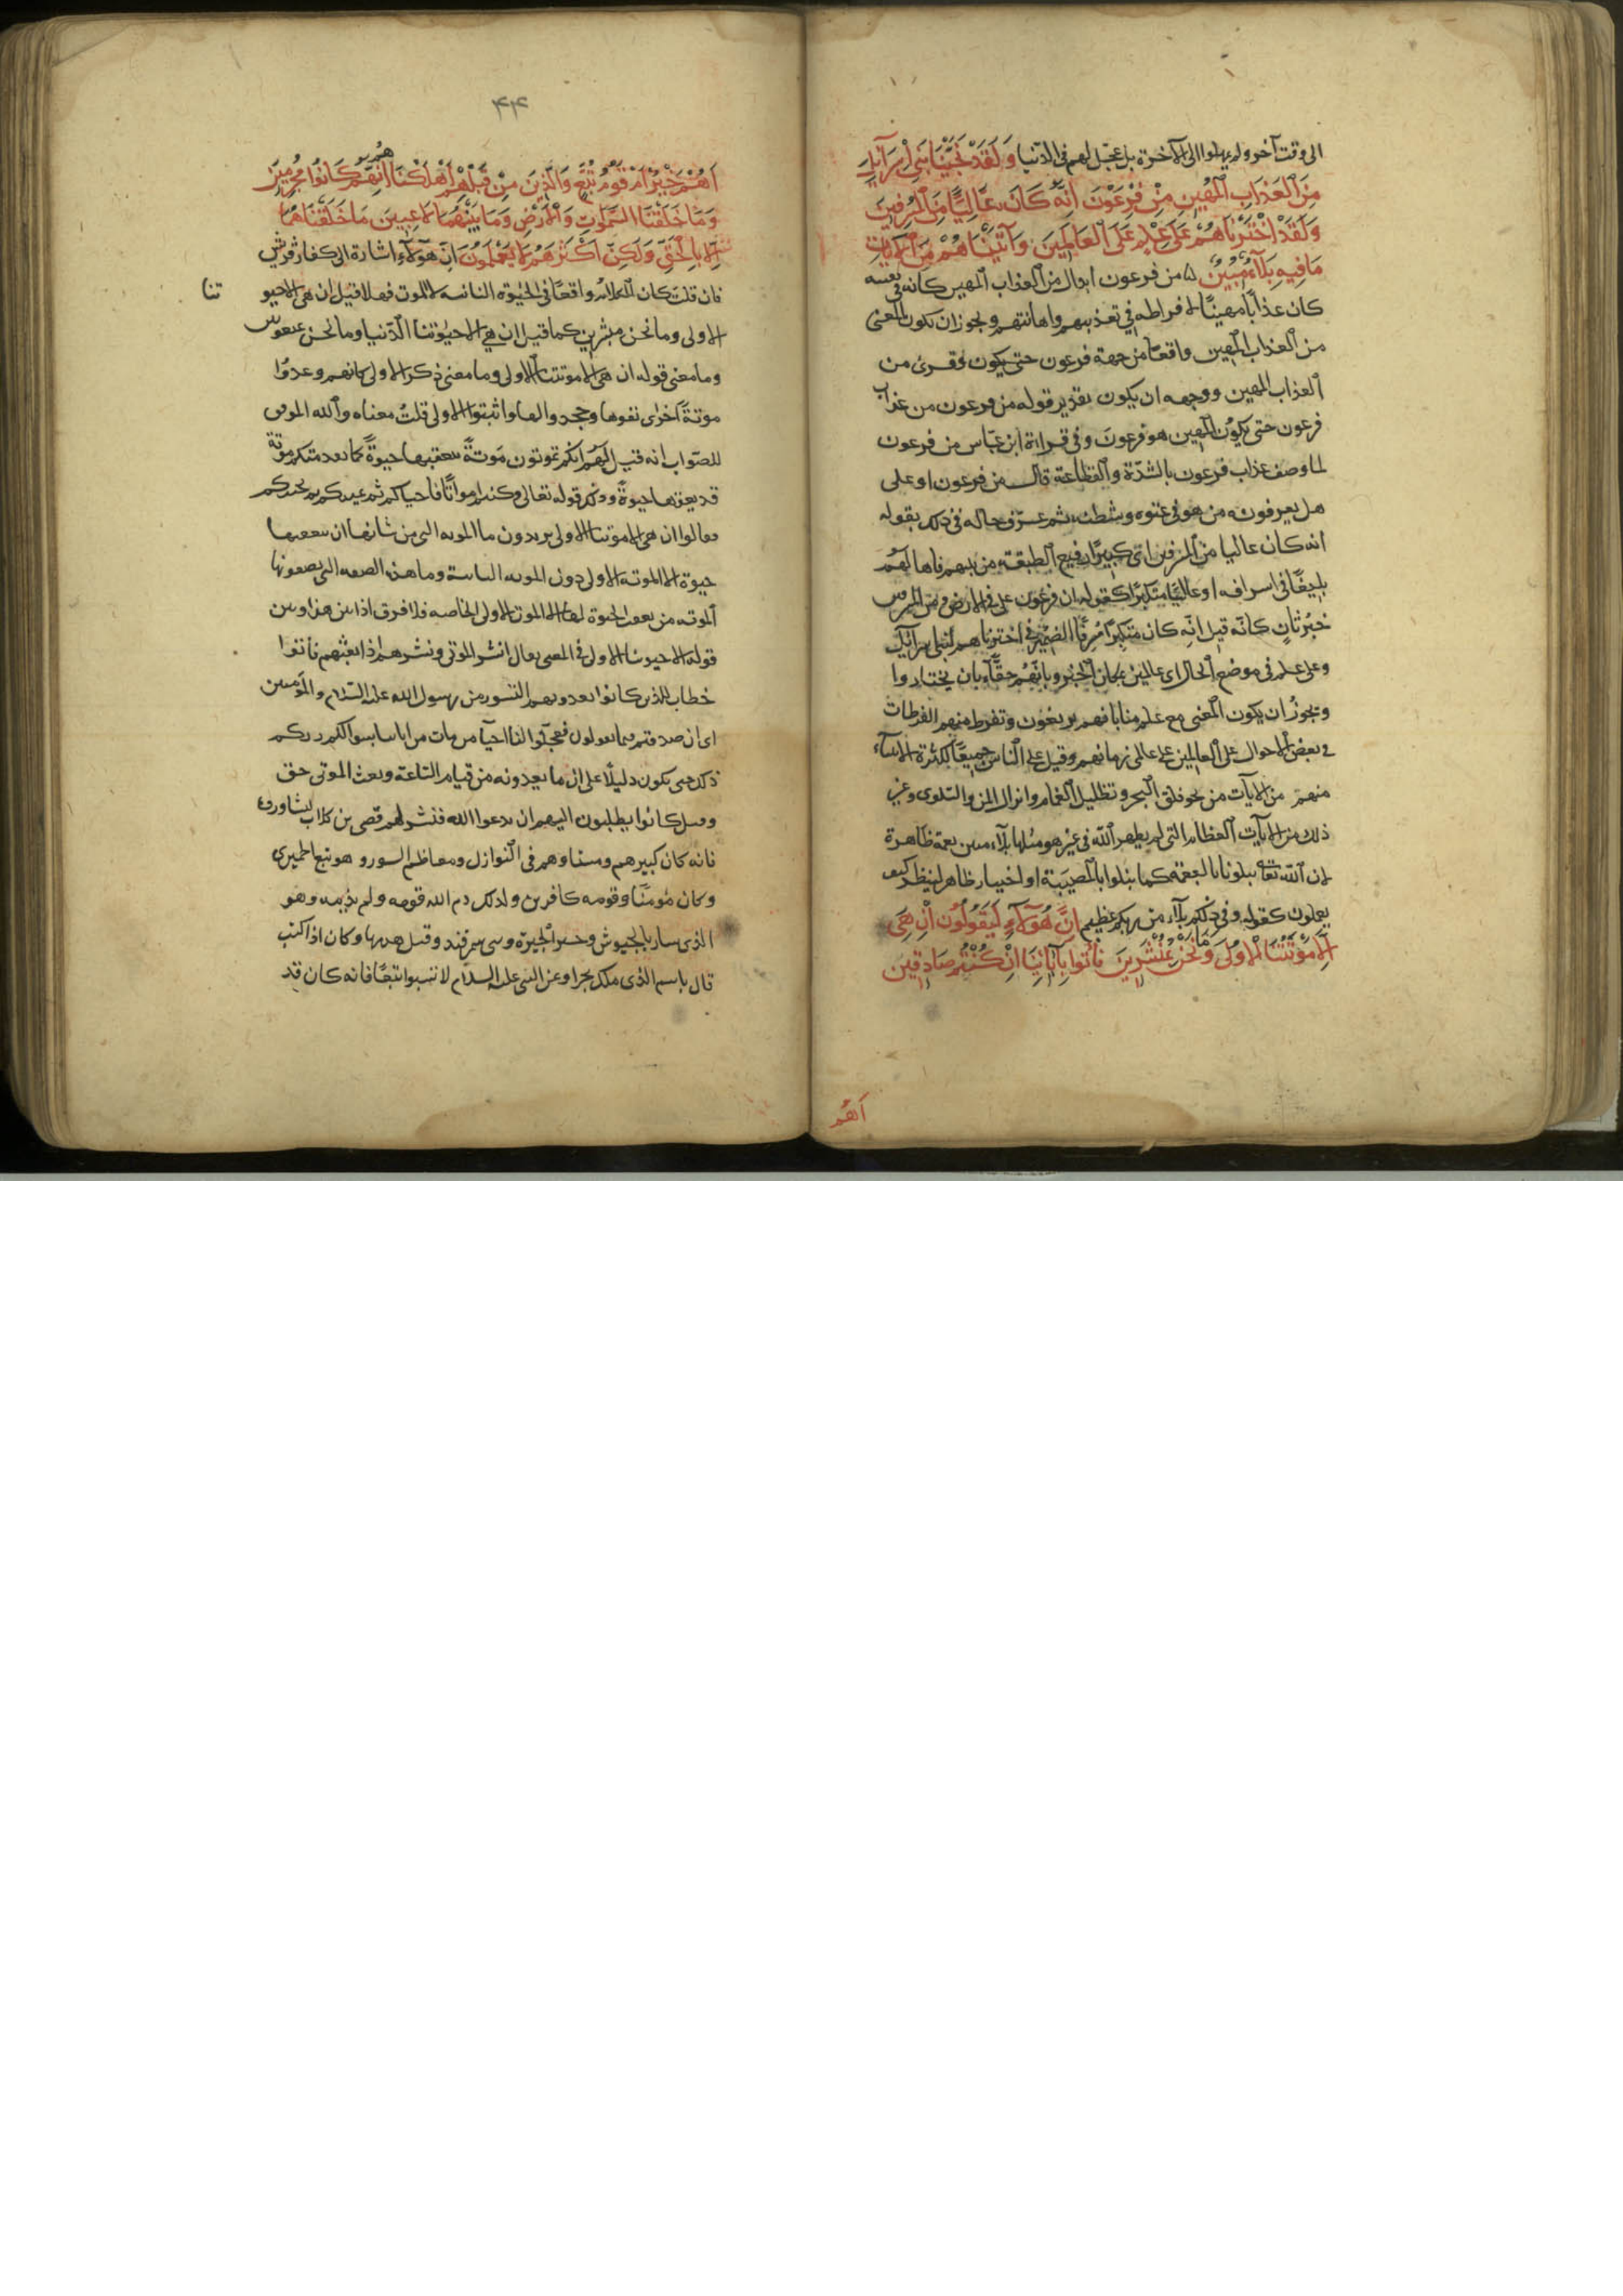 الى وقت آخر ولم يمهلوا الى الآخرة بل عجّل لهم فى الدّنيا وَلَقَدْ نَجَّيْنَا بَنِى اِسْرَآئِلَ
مِنَ الْعَذَابِ الْمُهِينِ مِنْ فِرْعَوْنَ اِنَّهُ كَانَ عَالِيًا مِنَ الْمُسْرِفِينَ
وَلَقَدْ اخْتَرْنَاهُمْ عَلَى عِلْمٍ عَلَى الْعَالَمِينَ وَآتَيْنَاهُمْ مِنَ الْآيَاتِ
مَا فِيهِ بَلَآءٌ مُبِينٌ من فرعون ابدال من العذاب المهين كانه فى نفسه
كان عذاباً مهيناً لافراطه فى تعذيبهم واهانتهم ويجوز ان تكون المعنى
من العذاب المهين واقعاً من جهة فرعون حتى يكون وقرئ من
العذاب المهين ووجهه ان يكون تقدير قوله من فرعون من عذاب
فرعون حتى يكون المهين هو فرعون وفى قراءة ابن عبّاس من فرعون
لما وصف عذاب فرعون بالشدّة والفظاعة قال من فرعون او على
هل يعرفونه من هو فى عتوه وشيطنته ثم عرّف حاله فى ذلك بقوله
انه كان عاليا من المسرفين اى كبيرًا رفيع الطبقة من بينهم فاها لهم
بليغًا فى اسرافه او عاليًا متكبرًا كقوله ان فرعون على فى الارض ومن المسرفين
خبر ثانٍ كانه قيل انه كان متكبرًا مسرفًا الضمير فى اخترناهم لبنى اسرائيل
وعلى علم فى موضع الحال اى عالمين بمكان الخيرة وبانهم حقّاء بان يختاروا
ويجوز ان يكون المعنى مع علم منا بانهم يزيغون وتفرط منهم الفرطات
فى بعض الاحوال على العالمين على عالمى زمانهم وقيل على الناس جميعًا لكثرة الانبيآء
منهم من الآيات من نحو فلق البحر وتظليل الغمام وانزال المن والسلوى وغير
ذلك من الآيات العظام التى لم يظهر الله فى غيرهم مثلها بلآء مبين نعمة ظاهرة
لان الله تعالى يبلونا بالنعمة كما يبلوا بالمصيبة او اختبار ظاهر لينظر كيف
يعملون كقوله وفى ذلكم بلآء من ربكم عظيم اِنَّ هٰؤُلَآءِ لَيَقُولُونَ اِنْ هِىَ
اِلَّا مَوْتَتُنَا الْاُولَى وَمَا نَحْنُ بِمُنْشَرِينَ فَأْتُوا بِآبَائِنَا اِنْ كُنْتُمْ صَادِقِينَ
اَهُمْ
۴۴
اَهُمْ خَيْرٌ اَمْ قَوْمُ تُبَّعٍ وَالَّذِينَ مِنْ قَبْلِهِمْ اَهْلَكْنَاهُمْ اِنَّهُمْ كَانُوا مُجْرِمِينَ
وَمَا خَلَقْنَا السَّمٰوَاتِ وَالْاَرْضَ وَمَا بَيْنَهُمَا لَاعِبِينَ مَا خَلَقْنَاهُمَا
اِلَّا بِالْحَقِّ وَلَكِنَّ اَكْثَرَهُمْ لَا يَعْلَمُونَ اِنّ هٰؤلآءِ اشارة الى كفار قريش
فان قلت كان الكلام واقعاً فى الحيوة الثانية لا الموت فهلا قيل ان هى الا حيو تنا
الاولى وما نحن بمنشرين كما قيل ان هى الا حيوتنا الدّنيا وما نحن بمبعوثين
وما معنى قوله ان هى الا موتتنا الاولى وما معنى ذكر الاولى كانهم وعدوا
موتةً اخرى نفوها وجحدوا لها واثبتوا الاولى قلت معناه والله الموفق
للصّواب انه قيل لهم انكم تموتون موتةً تتعقبها حيوةً كما تقدمتكم موتة
قد تعقبها حيوةً وذلك قوله تعالى وكنتم امواتًا فاحياكم ثم يميتكم ثم يحييكم
فقالوا ان هى الا موتتنا الاولى يريدون ما الموتة التى من شانها ان تتعقبها
حيوة الا الموتة الاولى دون الموتة الثانية وما هذه الصفة التى تصفون بها
الموتة من تعقب الحيوة لها الا الموتة الاولى الخاصه فلا فرق اذا بين هذا وبين
قوله الا حيوتنا الاولى فى المعنى يقال انشر الموتى ونشرهم اذا بعثهم فأتوا
خطاب للذين كانوا يعدونهم النشور من رسول الله عليه السّلام والمؤمنين
اى ان صدقتم فيما تقولون فعجّلوا لنا احيآء من مات من ابائنا بسوالكم ربكم
ذلك حتى يكون دليلاً على ان ما تعدونه من قيام الساعة وبعث الموتى حق
وقيل كانوا يطلبون اليهم ان يدعوا الله فينشر لهم قصى بن كلاب ليشاوروه
فانه كان كبيرهم ومشاورهم فى النوازل ومعاظم السور و هو تبع الحميرى
وكان مؤمنًا وقومه كافرين ولذلك ذم الله قومه ولم يذمه وهو
الذى سار بالجيوش وحير الحيرة وبنى سمرقند وقيل هدمها وكان اذا كتب
قال باسم الذى ملك بحرا وعن النبى عليه السلام لا تسبوا تبعًا فانه كان قد